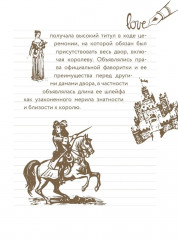 love
получала высокий титул в ходе це-
ремонии, на которой обязан был
присутствовать весь двор, вклю-
чая королеву. Объявлялись пра-
ва официальной фаворитки и ее
преимущества перед други-
ми дамами двора, в частности
объявлялась длина ее шлейфа
как узаконенного мерила знатности
и близости к королю.